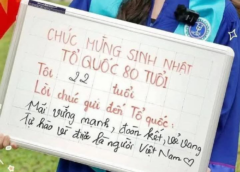 CHÚC MỪNG SINH NHẬT
TỔ QUỐC 80 TUỔI
Tôi: 22 tuổi
Lời chúc gửi đến Tổ quốc:
Mãi vững mạnh, đoàn kết, vẻ vang
tự hào vì được là người Việt Nam ♡